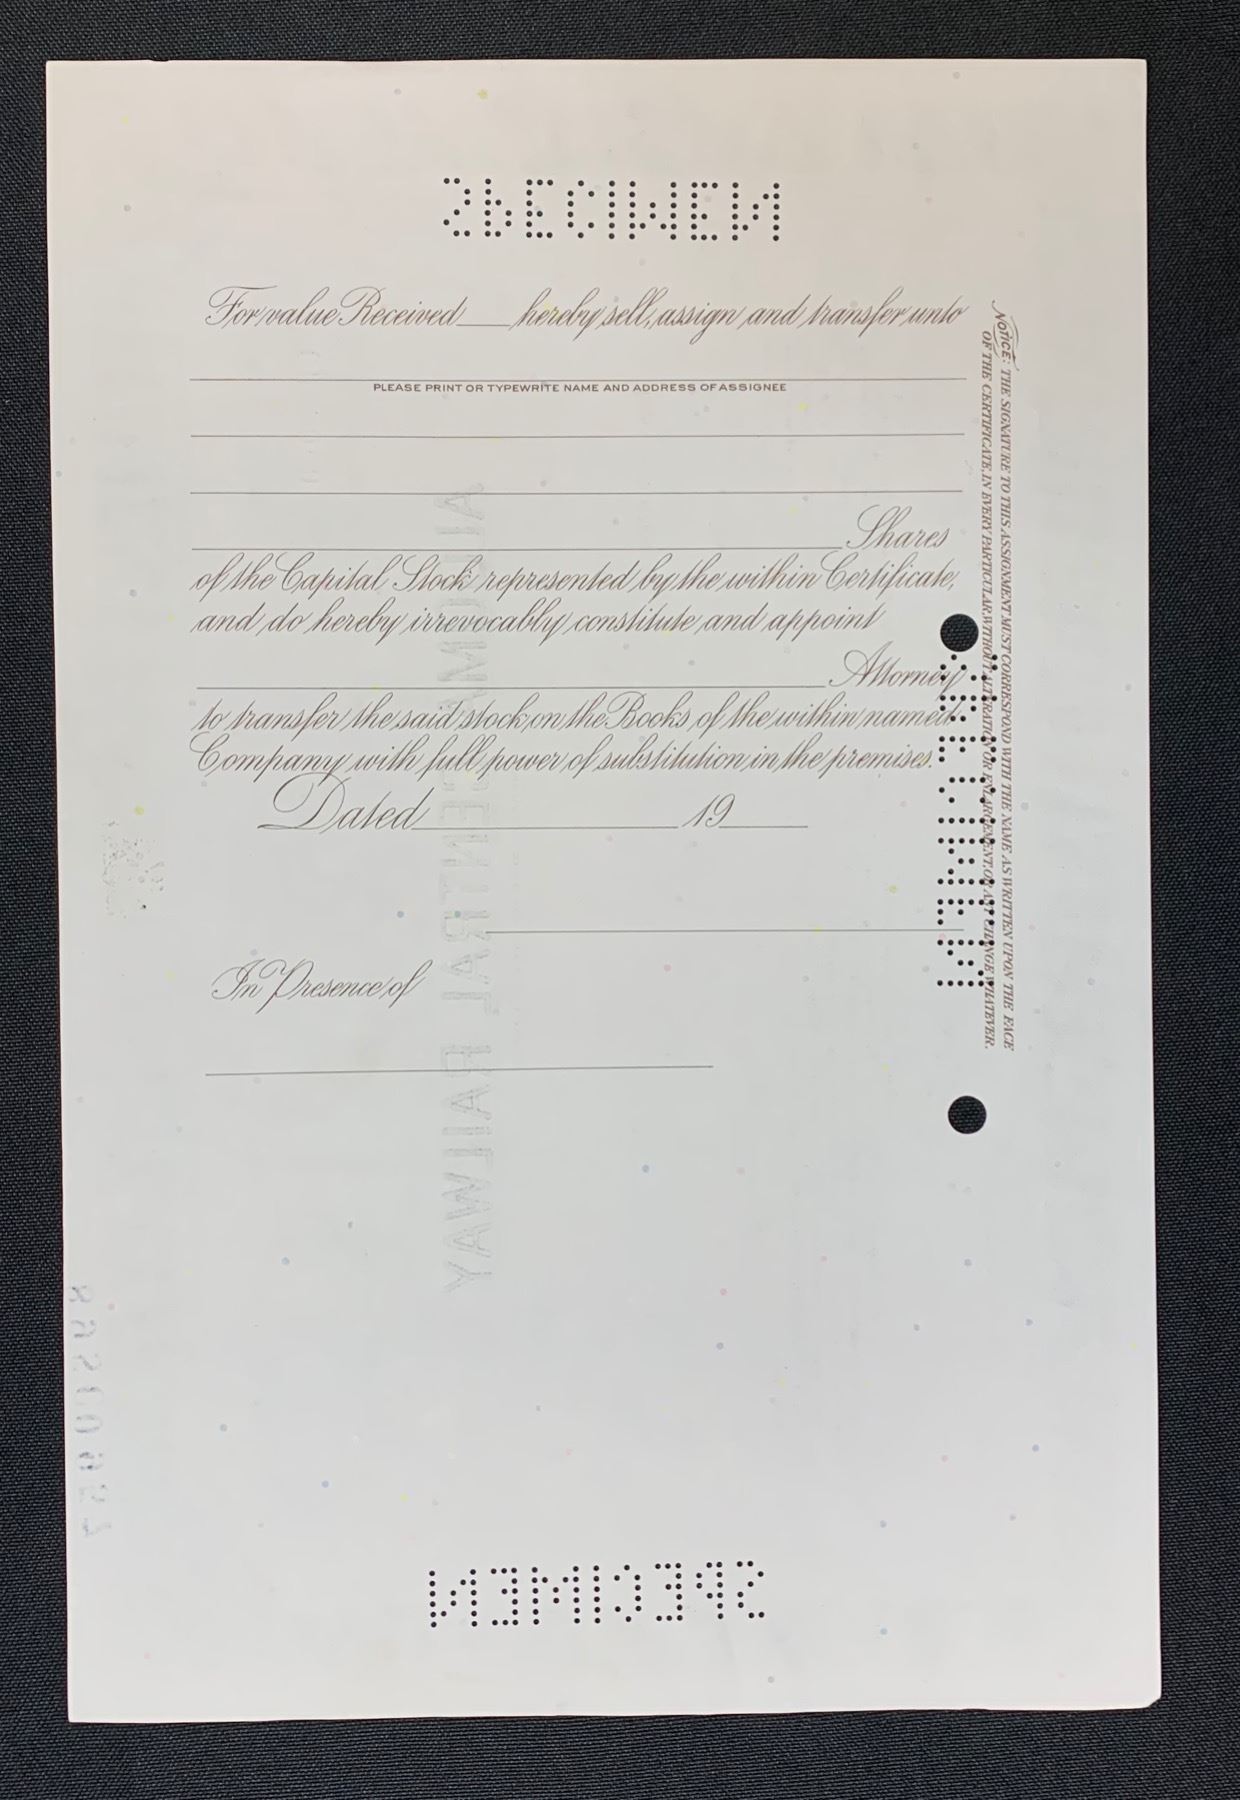 SPECIMEN
For value Received____hereby sell, assign and transfer unto
PLEASE PRINT OR TYPEWRITE NAME AND ADDRESS OF ASSIGNEE
Shares
of the Capital Stock represented by the within Certificate,
and do hereby irrevocably constitute and appoint
Attorney
to transfer the said stock on the Books of the within named
Company with full power of substitution in the premises.
Dated____________19____
In Presence of
NOTICE: THE SIGNATURE TO THIS ASSIGNMENT MUST CORRESPOND WITH THE NAME AS WRITTEN UPON THE FACE
OF THE CERTIFICATE, IN EVERY PARTICULAR, WITHOUT ALTERATION OR ENLARGEMENT, OR ANY CHANGE WHATEVER.
SPECIMEN
CENTRAL RAILWAY
SPECIMEN